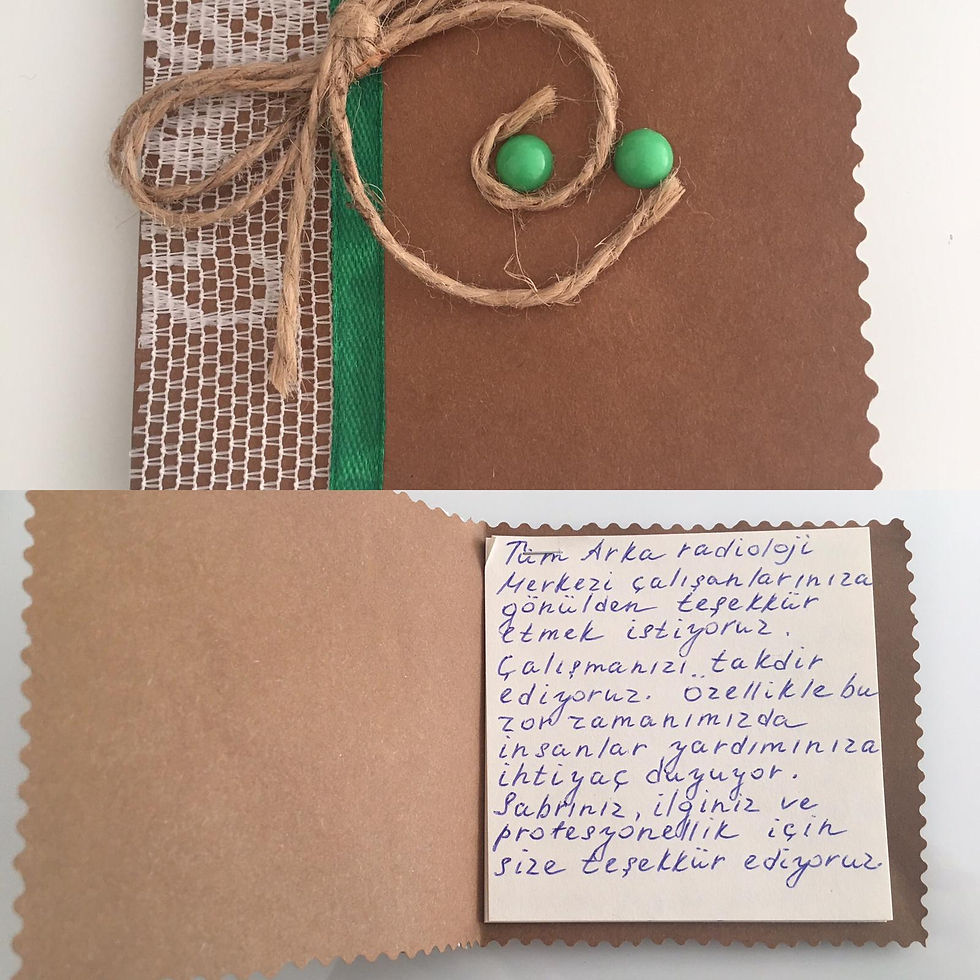 Tüm Arka radioloji
Merkezi çalışanlarınıza
gönülden teşekkür
etmek istiyoruz.
Çalışmanızı takdir
ediyoruz. Özellikle bu
zor zamanımızda
insanlar yardımınıza
ihtiyaç duyuyor.
Sabrınız, ilginiz ve
profesyonellik için
size teşekkür ediyoruz.